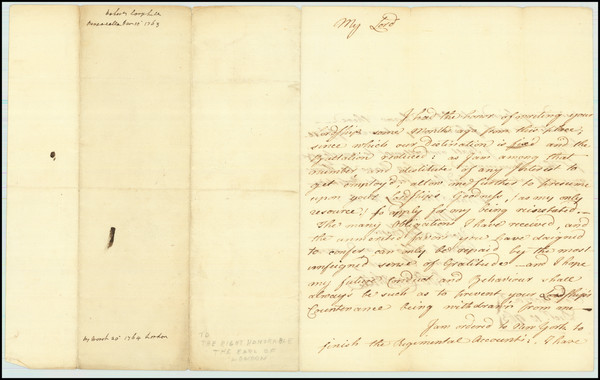 Robert Campbell
Pensacola Decr 15th 1763
Rd March 20th 1764 London
TO
THE RIGHT HONORABLE
THE EARL OF
My Lord
I had the honor of writing your
Lordship some Months ago from this place,
since which our Destination is fixed and the
Battalion reduced: as I am among that
number and destitute of any Interest to
get employ'd; allow me further to presume
upon your Lordships Goodness, (as my only
resource) to apply for my being reinstated.
The many Obligations I have received, and
the favors you have deigned
to confer can only be repaid by the most
unfeigned sense of Gratitude and I hope
my future Conduct and Behaviour shall
always be such as to prevent your Lordship's
Countenance being withdrawn from me
I am ordered to New York to
finish the Regimental Accounts: I have